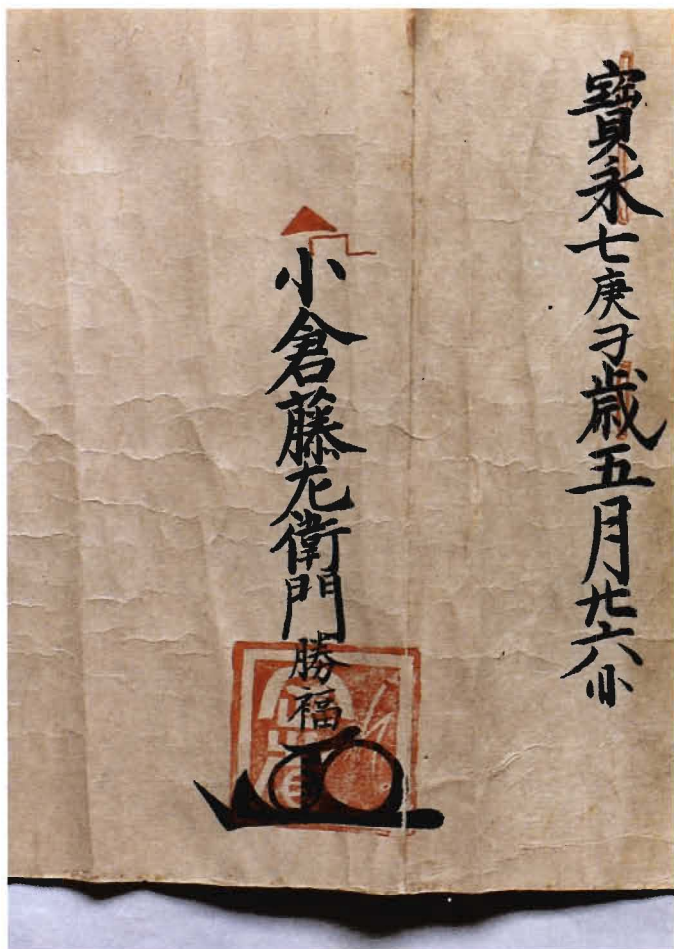 寳永七庚刁歳五月廿六日
小倉藤左衛門勝福